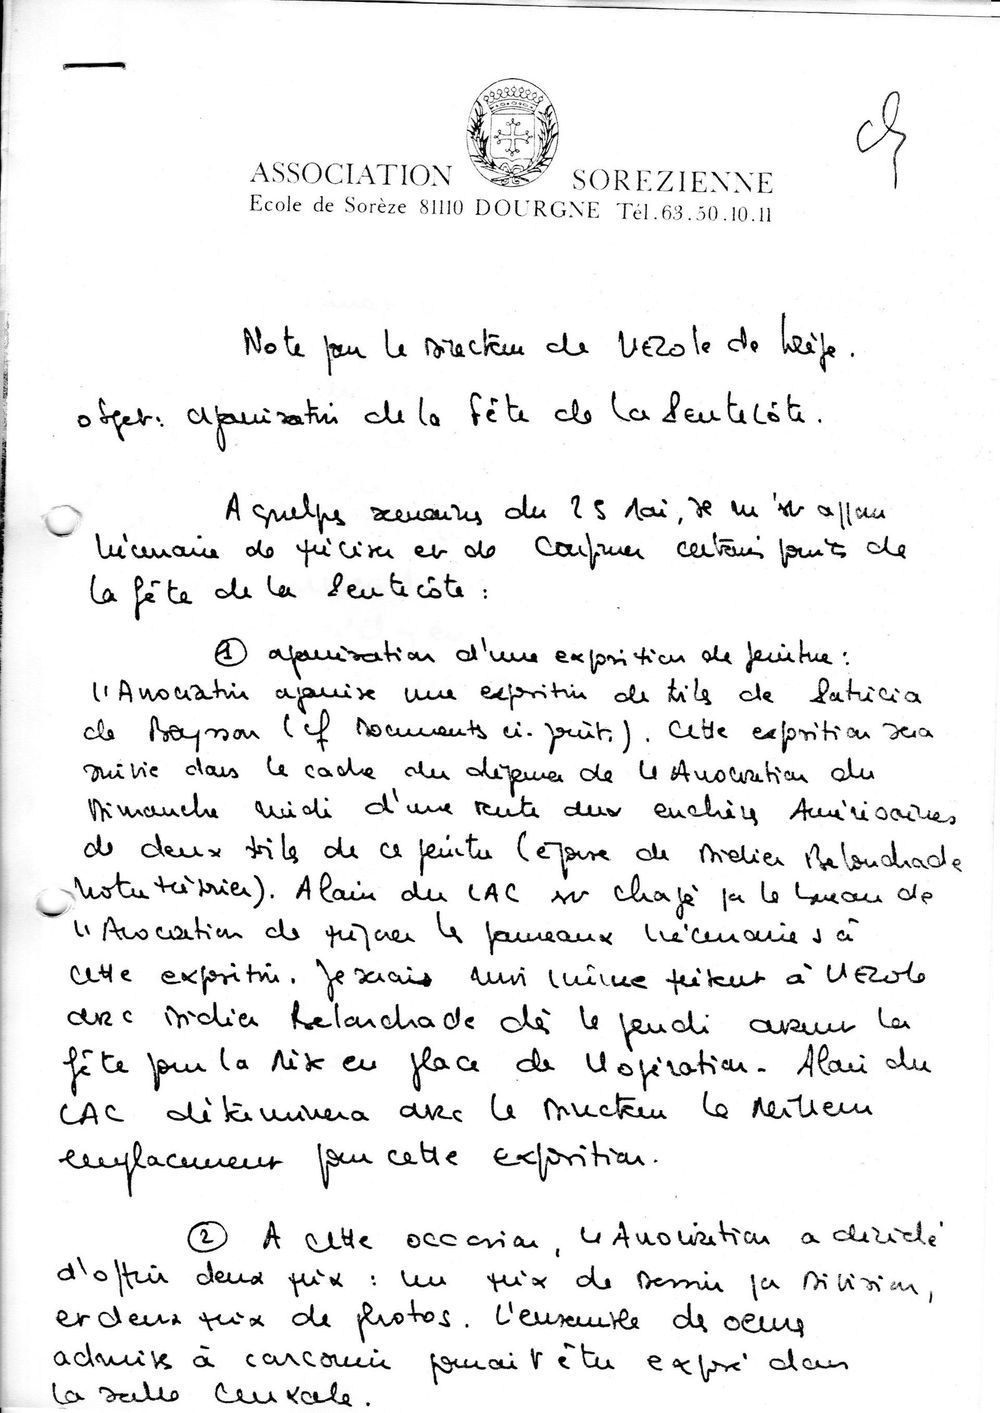 ASSOCIATION SOREZIENNE
Ecole de Sorèze 81110 DOURGNE Tél.63.50.10.11
Note pour le Directeur de l'Ecole de Sorèze.
objet: organisation de la fête de la Pentecôte.
A quelques semaines du 25 Mai, il m'est apparu
nécessaire de préciser et de confirmer certains points de
la fête de la Pentecôte :
① organisation d'une exposition de peinture :
l'Association organise une exposition de toiles de Patricia
de Baysson (cf Documents ci-joints). Cette exposition sera
suivie dans le cadre du déjeuner de l'Association du
Dimanche midi d'une vente aux enchères Américaines
de deux toiles de ce peintre (épouse de Didier Belondrade
notre trésorier). Alain du CAC est chargé par le bureau de
l'Association de préparer les panneaux nécessaires à
cette exposition. Je serais moi même présent à l'Ecole
avec Didier Belondrade dès le jeudi avant la
fête pour la mise en place de l'opération. Alain du
CAC déterminera avec le Directeur le meilleur
emplacement pour cette exposition.
② A cette occasion, l'Association a décidé
d'offrir deux prix : un prix de dessin par Division,
et deux prix de photos. L'ensemble des oeuvres
admises à concourir pourrait être exposé dans
la salle Centrale.